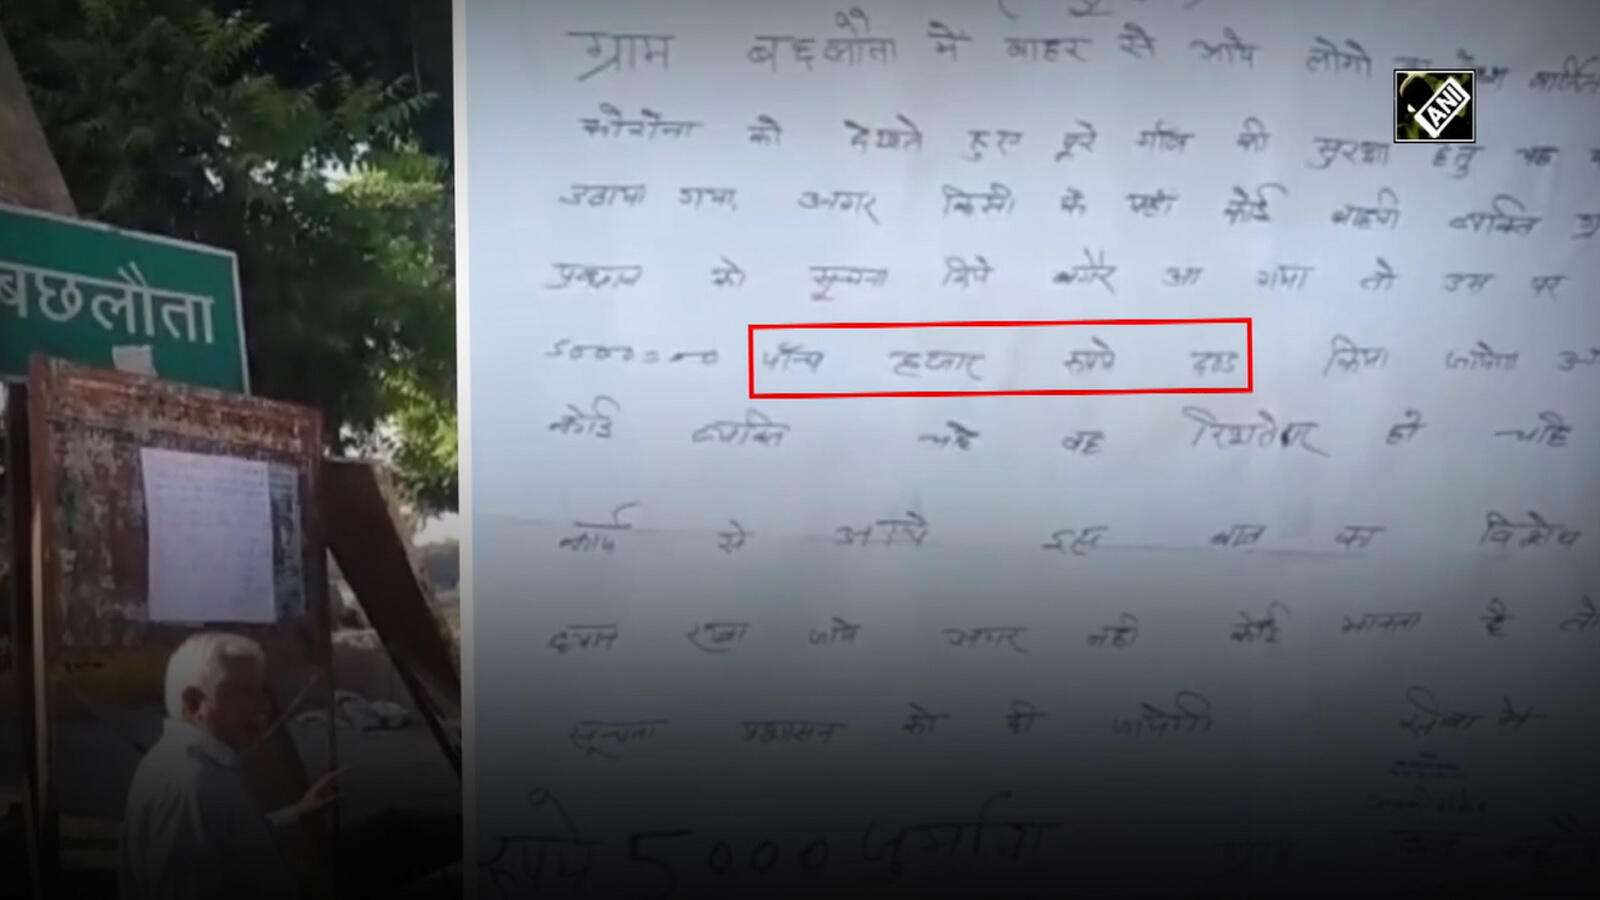 बछलौता
ANI
ग्राम बछलौता में बाहर से आये लोगो
कोरोना को देखते हुए पूरे गाँव की सुरक्षा हेतु यह
उठाया गया, अगर किसी के यहाँ कोई बाहरी व्यक्ति
प्रधान को सूचना दिये बगैर आ गया तो उस पर
5000=00 पाँच हजार रूपये दण्ड किया जायेगा
कोई व्यक्ति चाहे वह रिश्तेदार हो चाहे
कार्य से आये इस बात का विशेष
ध्यान रखा जाये अगर नही कोई मानता है तो
सूचना प्रशासन को दी जायेगी सेवा में
रूपये 5000 जुर्माना